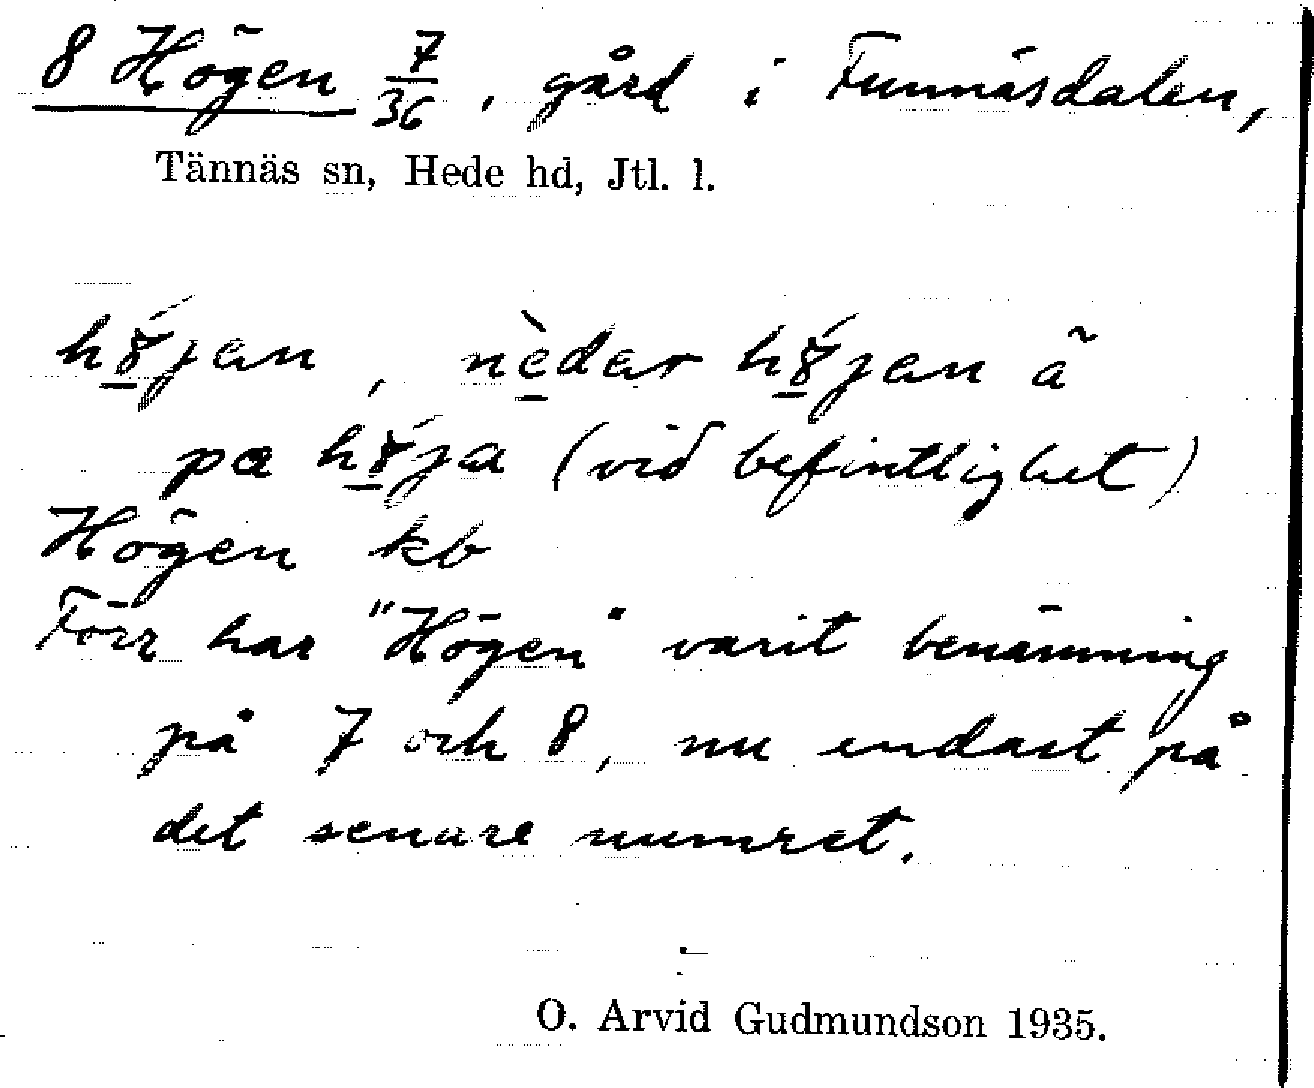 8 Högen 7/36, gård i Funnäsdalen,
Tännäs sn, Hede hd, Jtl. l.
hö́jen, nèdər hö́jen å̃
pa hö́ja (vid befintlighet)
Högen kb
Förr har "Högen" varit benämning
på 7 och 8, nu endast på
det senare numret.
O. Arvid Gudmundson 1935.